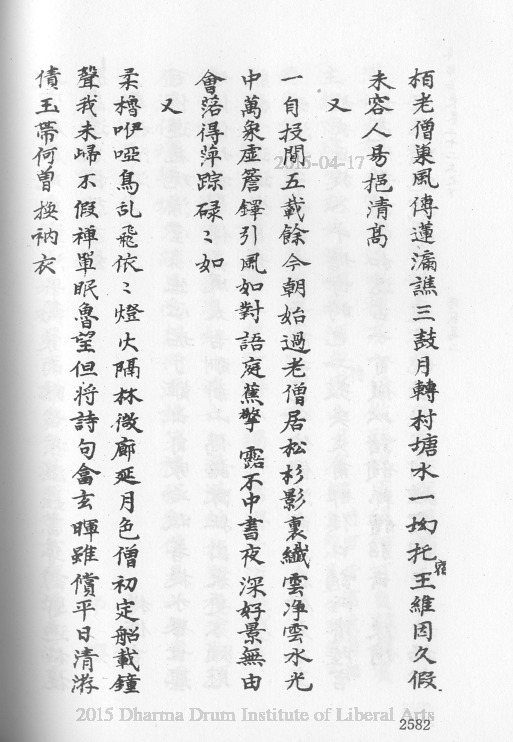 栢老僧巢風傳蓮漏譙三鼓月轉村塘水一坳托王維因久假宿
未容人易挹清高
又
一自投閒五載餘今朝始過老僧居松杉影裏纖雲净雲水光
中萬象虛簷鐸引風如對語庭蕉擎露不中書夜深好景無由
會落得萍踪碌〻如
又
柔櫓咿啞鳥乱飛依〻燈火隔林微廊延月色僧初定船載鐘
聲我未歸不假禅單眠魯望但将詩句畲玄暉雖償平日清游
債玉帶何曾換衲衣
2015-04-17
2015 Dharma Drum Institute of Liberal Arts
2582